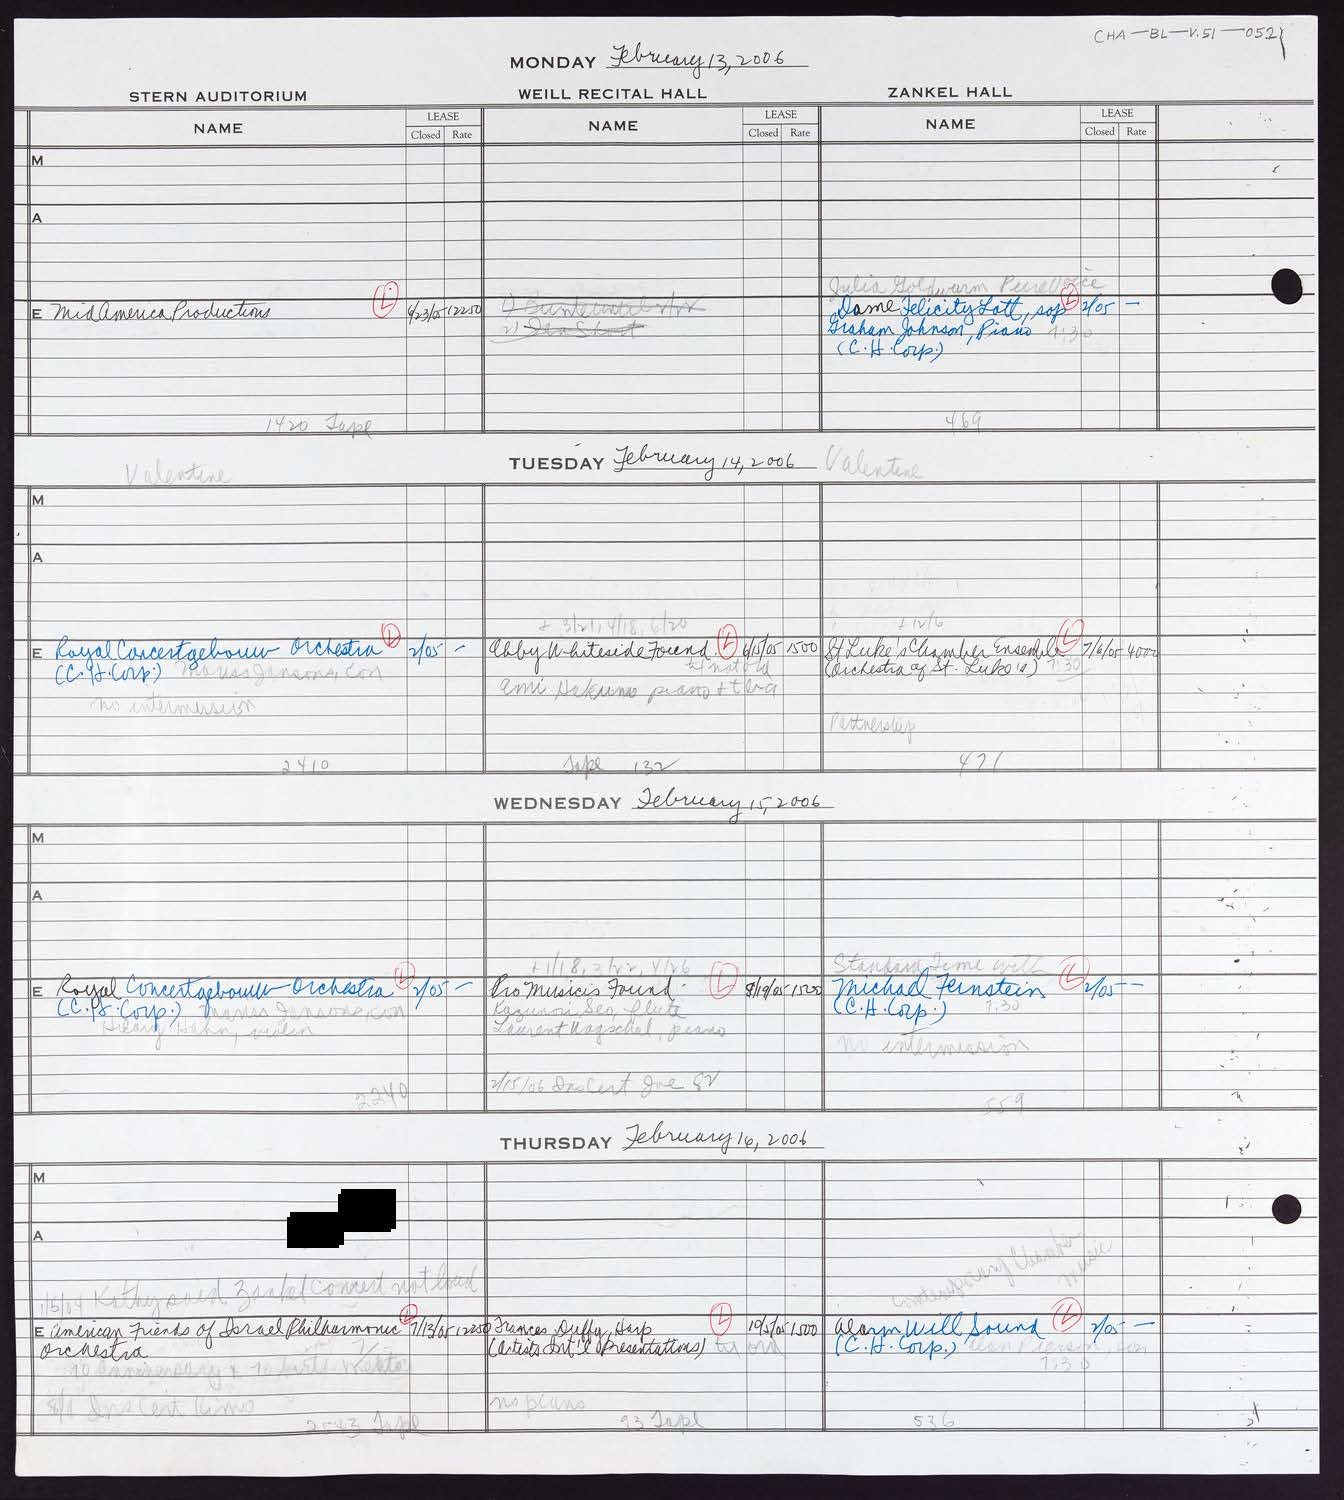 CHA-BL-V.51-052
MONDAY February 13, 2006
STERN AUDITORIUM WEILL RECITAL HALL ZANKEL HALL
NAME LEASE Closed Rate NAME LEASE Closed Rate NAME LEASE Closed Rate
M
A
Julia Goldwurm Pure Voice
E MidAmerica Productions L 6/23/05 12250
1)
2)
Dame Felicity Lott, sop L 2/05 —
Graham Johnson, Piano 7:30
(C.H. Corp.)
1420 Tape
469
Valentine TUESDAY February 14, 2006 Valentine
M
A
+ 3/21, 4/18, 6/20
+ 12/6
E Royal Concertgebouw Orchestra L 2/05 -
(C.H. Corp.) Mariss Jansons, con
no intermission
Abby Whiteside Found. L 6/15/05 1500
piano
St Luke's Chamber Ensemble L 7/6/05 4000
(Orchestra of St. Luke's) 7:30
Partnership
2410
Tape 132
471
WEDNESDAY February 15, 2006
M
A
+1/18, 3/22, 4/26
Standard Time with
E Royal Concertgebouw Orchestra L 2/05 -
(C.H. Corp.) Mariss Jansons, con
Hilary Hahn, violin
Pro Musicis Found. L 8/19/05 1500
Kazunori Seo, flute
Laurent Wagschal, piano
Michael Feinstein L 2/05 -
(C.H. Corp.) 7:30
no intermission
2/15/06 Ins Cert Joe
2240
559
THURSDAY February 16, 2006
M
A
Contemporary Chamber
Music
1/5/04 Kathy said Zankel concert not loud
E American Friends of Israel Philharmonic L 7/13/05 12250
Orchestra
70 Anniversary +
8/1 Ins Cert
Frances Duffy, Harp L 10/5/05 1500
(Artists Int'l Presentations)
no piano
Alarm Will Sound L 2/05 —
(C.H. Corp.) Alan Pierson, con
7:30
2543 Tape
93 Tape
536